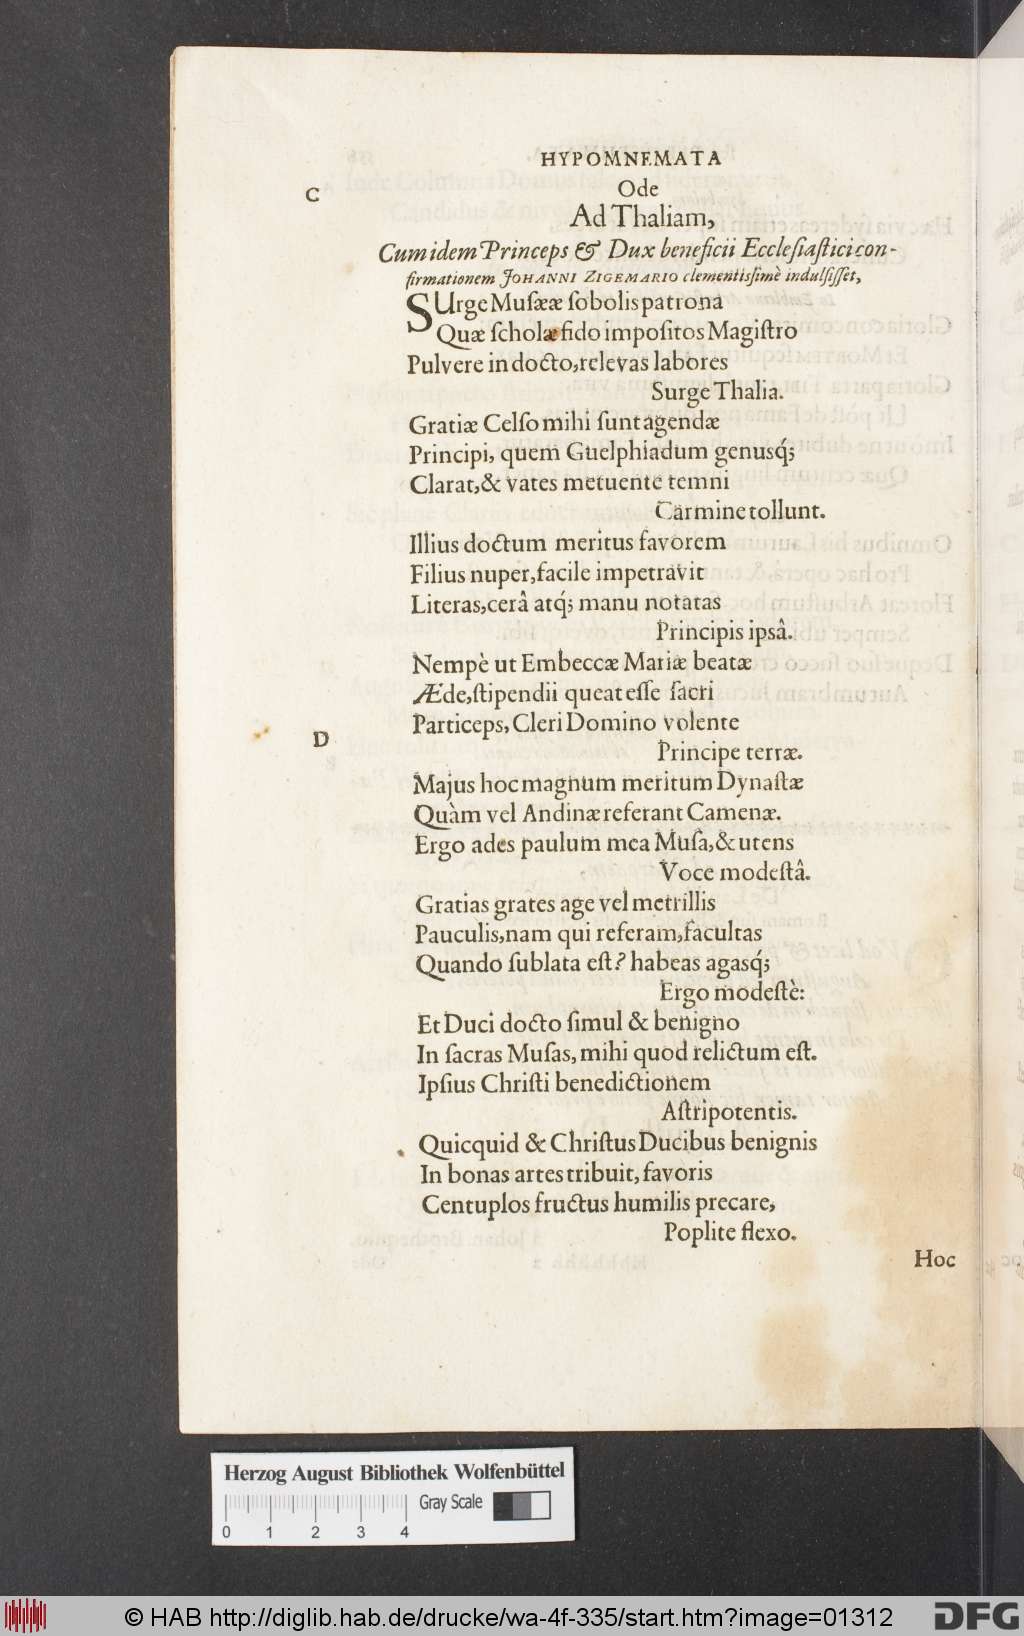 HYPOMNEMATA
C
Ode
Ad Thaliam,
Cum idem Princeps & Dux beneficii Ecclesiastici con-
firmationem JOHANNI ZIGEMARIO clementissimè indulsisset,
SUrge Musææ sobolis patrona
Quæ scholæ fido impositos Magistro
Pulvere in docto, relevas labores
Surge Thalia.
Gratiæ Celso mihi sunt agendæ
Principi, quem Guelphiadum genusq́;
Clarat, & vates metuente temni
Carmine tollunt.
Illius doctum meritus favorem
Filius nuper, facile impetravit
Literas, cerâ atq́; manu notatas
Principis ipsâ.
Nempè ut Embeccæ Mariæ beatæ
Æde, stipendii queat esse sacri
Particeps, Cleri Domino volente
D
Principe terræ.
Majus hoc magnum meritum Dynastæ
Quàm vel Andinæ referant Camenæ.
Ergo ades paulum mea Musa, & utens
Voce modestâ.
Gratias grates age vel metrillis
Pauculis, nam qui referam, facultas
Quando sublata est? habeas agasq́;
Ergo modestè:
Et Duci docto simul & benigno
In sacras Musas, mihi quod relictum est.
Ipsius Christi benedictionem
Astripotentis.
Quicquid & Christus Ducibus benignis
In bonas artes tribuit, favoris
Centuplos fructus humilis precare,
Poplite flexo.
Hoc
Herzog August Bibliothek Wolfenbüttel
Gray Scale
0 1 2 3 4
© HAB http://diglib.hab.de/drucke/wa-4f-335/start.htm?image=01312
DFG